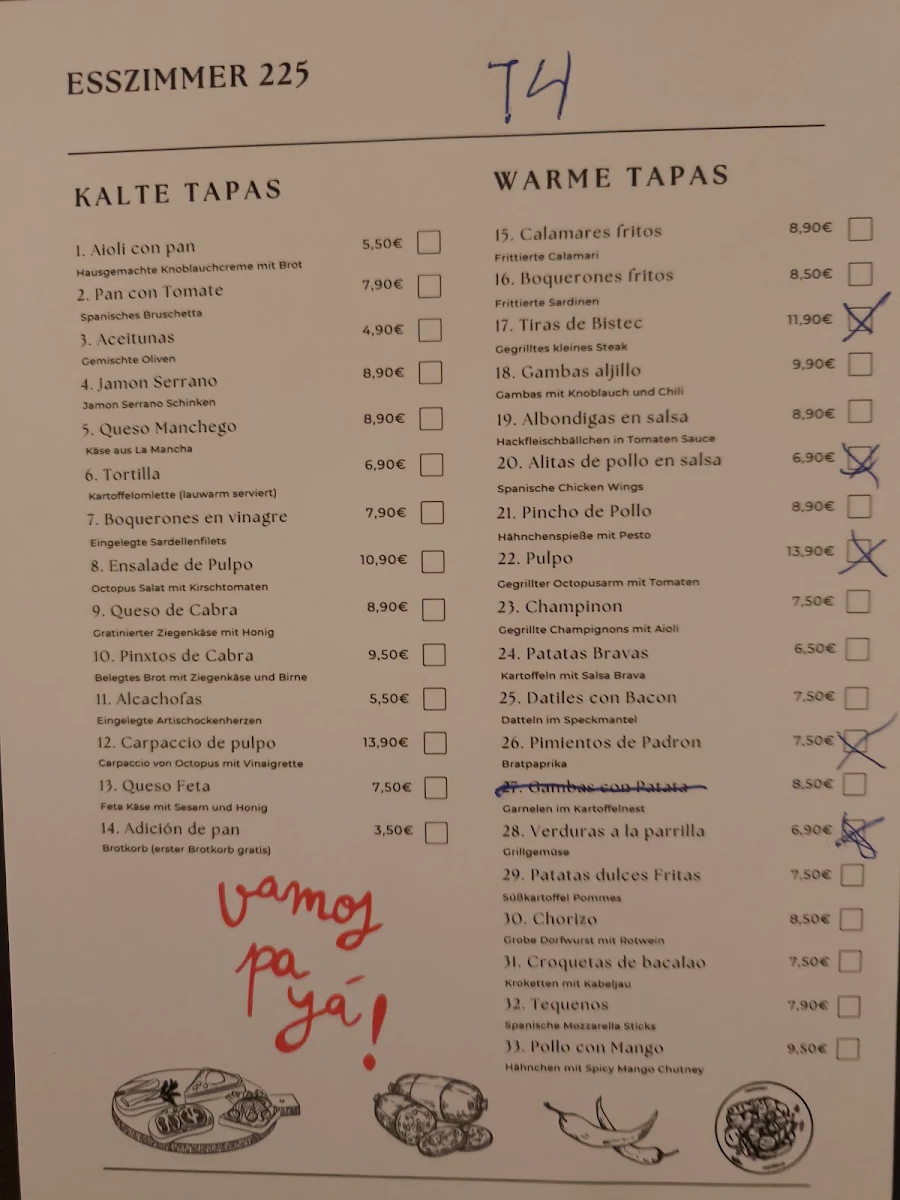 ESSZIMMER 225
T4
KALTE TAPAS
1. Aioli con pan 5,50€
Hausgemachte Knoblauchcreme mit Brot
2. Pan con Tomate 7,90€
Spanisches Bruschetta
3. Aceitunas 4,90€
Gemischte Oliven
4. Jamon Serrano 8,90€
Jamon Serrano Schinken
5. Queso Manchego 8,90€
Käse aus La Mancha
6. Tortilla 6,90€
Kartoffelomlette (lauwarm serviert)
7. Boquerones en vinagre 7,90€
Eingelegte Sardellenfilets
8. Ensalade de Pulpo 10,90€
Octopus Salat mit Kirschtomaten
9. Queso de Cabra 8,90€
Gratinierter Ziegenkäse mit Honig
10. Pinxtos de Cabra 9,50€
Belegtes Brot mit Ziegenkäse und Birne
11. Alcachofas 5,50€
Eingelegte Artischockenherzen
12. Carpaccio de pulpo 13,90€
Carpaccio von Octopus mit Vinaigrette
13. Queso Feta 7,50€
Feta Käse mit Sesam und Honig
14. Adición de pan 3,50€
Brotkorb (erster Brotkorb gratis)
vamos
pa
yá!
WARME TAPAS
15. Calamares fritos 8,90€
Frittierte Calamari
16. Boquerones fritos 8,50€
Frittierte Sardinen
17. Tiras de Bistec 11,90€
Gegrilltes kleines Steak
18. Gambas aljillo 9,90€
Gambas mit Knoblauch und Chili
19. Albondigas en salsa 8,90€
Hackfleischbällchen in Tomaten Sauce
20. Alitas de pollo en salsa 6,90€
Spanische Chicken Wings
21. Pincho de Pollo 8,90€
Hähnchenspieße mit Pesto
22. Pulpo 13,90€
Gegrillter Octopusarm mit Tomaten
23. Champinon 7,50€
Gegrillte Champignons mit Aioli
24. Patatas Bravas 6,50€
Kartoffeln mit Salsa Brava
25. Datiles con Bacon 7,50€
Datteln im Speckmantel
26. Pimientos de Padron 7,50€
Bratpaprika
27. Gambas con Patata 8,50€
Garnelen im Kartoffelnest
28. Verduras a la parrilla 6,90€
Grillgemüse
29. Patatas dulces Fritas 7,50€
Süßkartoffel Pommes
30. Chorizo 8,50€
Grobe Dorfwurst mit Rotwein
31. Croquetas de bacalao 7,50€
Kroketten mit Kabeljau
32. Tequenos 7,90€
Spanische Mozzarella Sticks
33. Pollo con Mango 9,50€
Hähnchen mit Spicy Mango Chutney